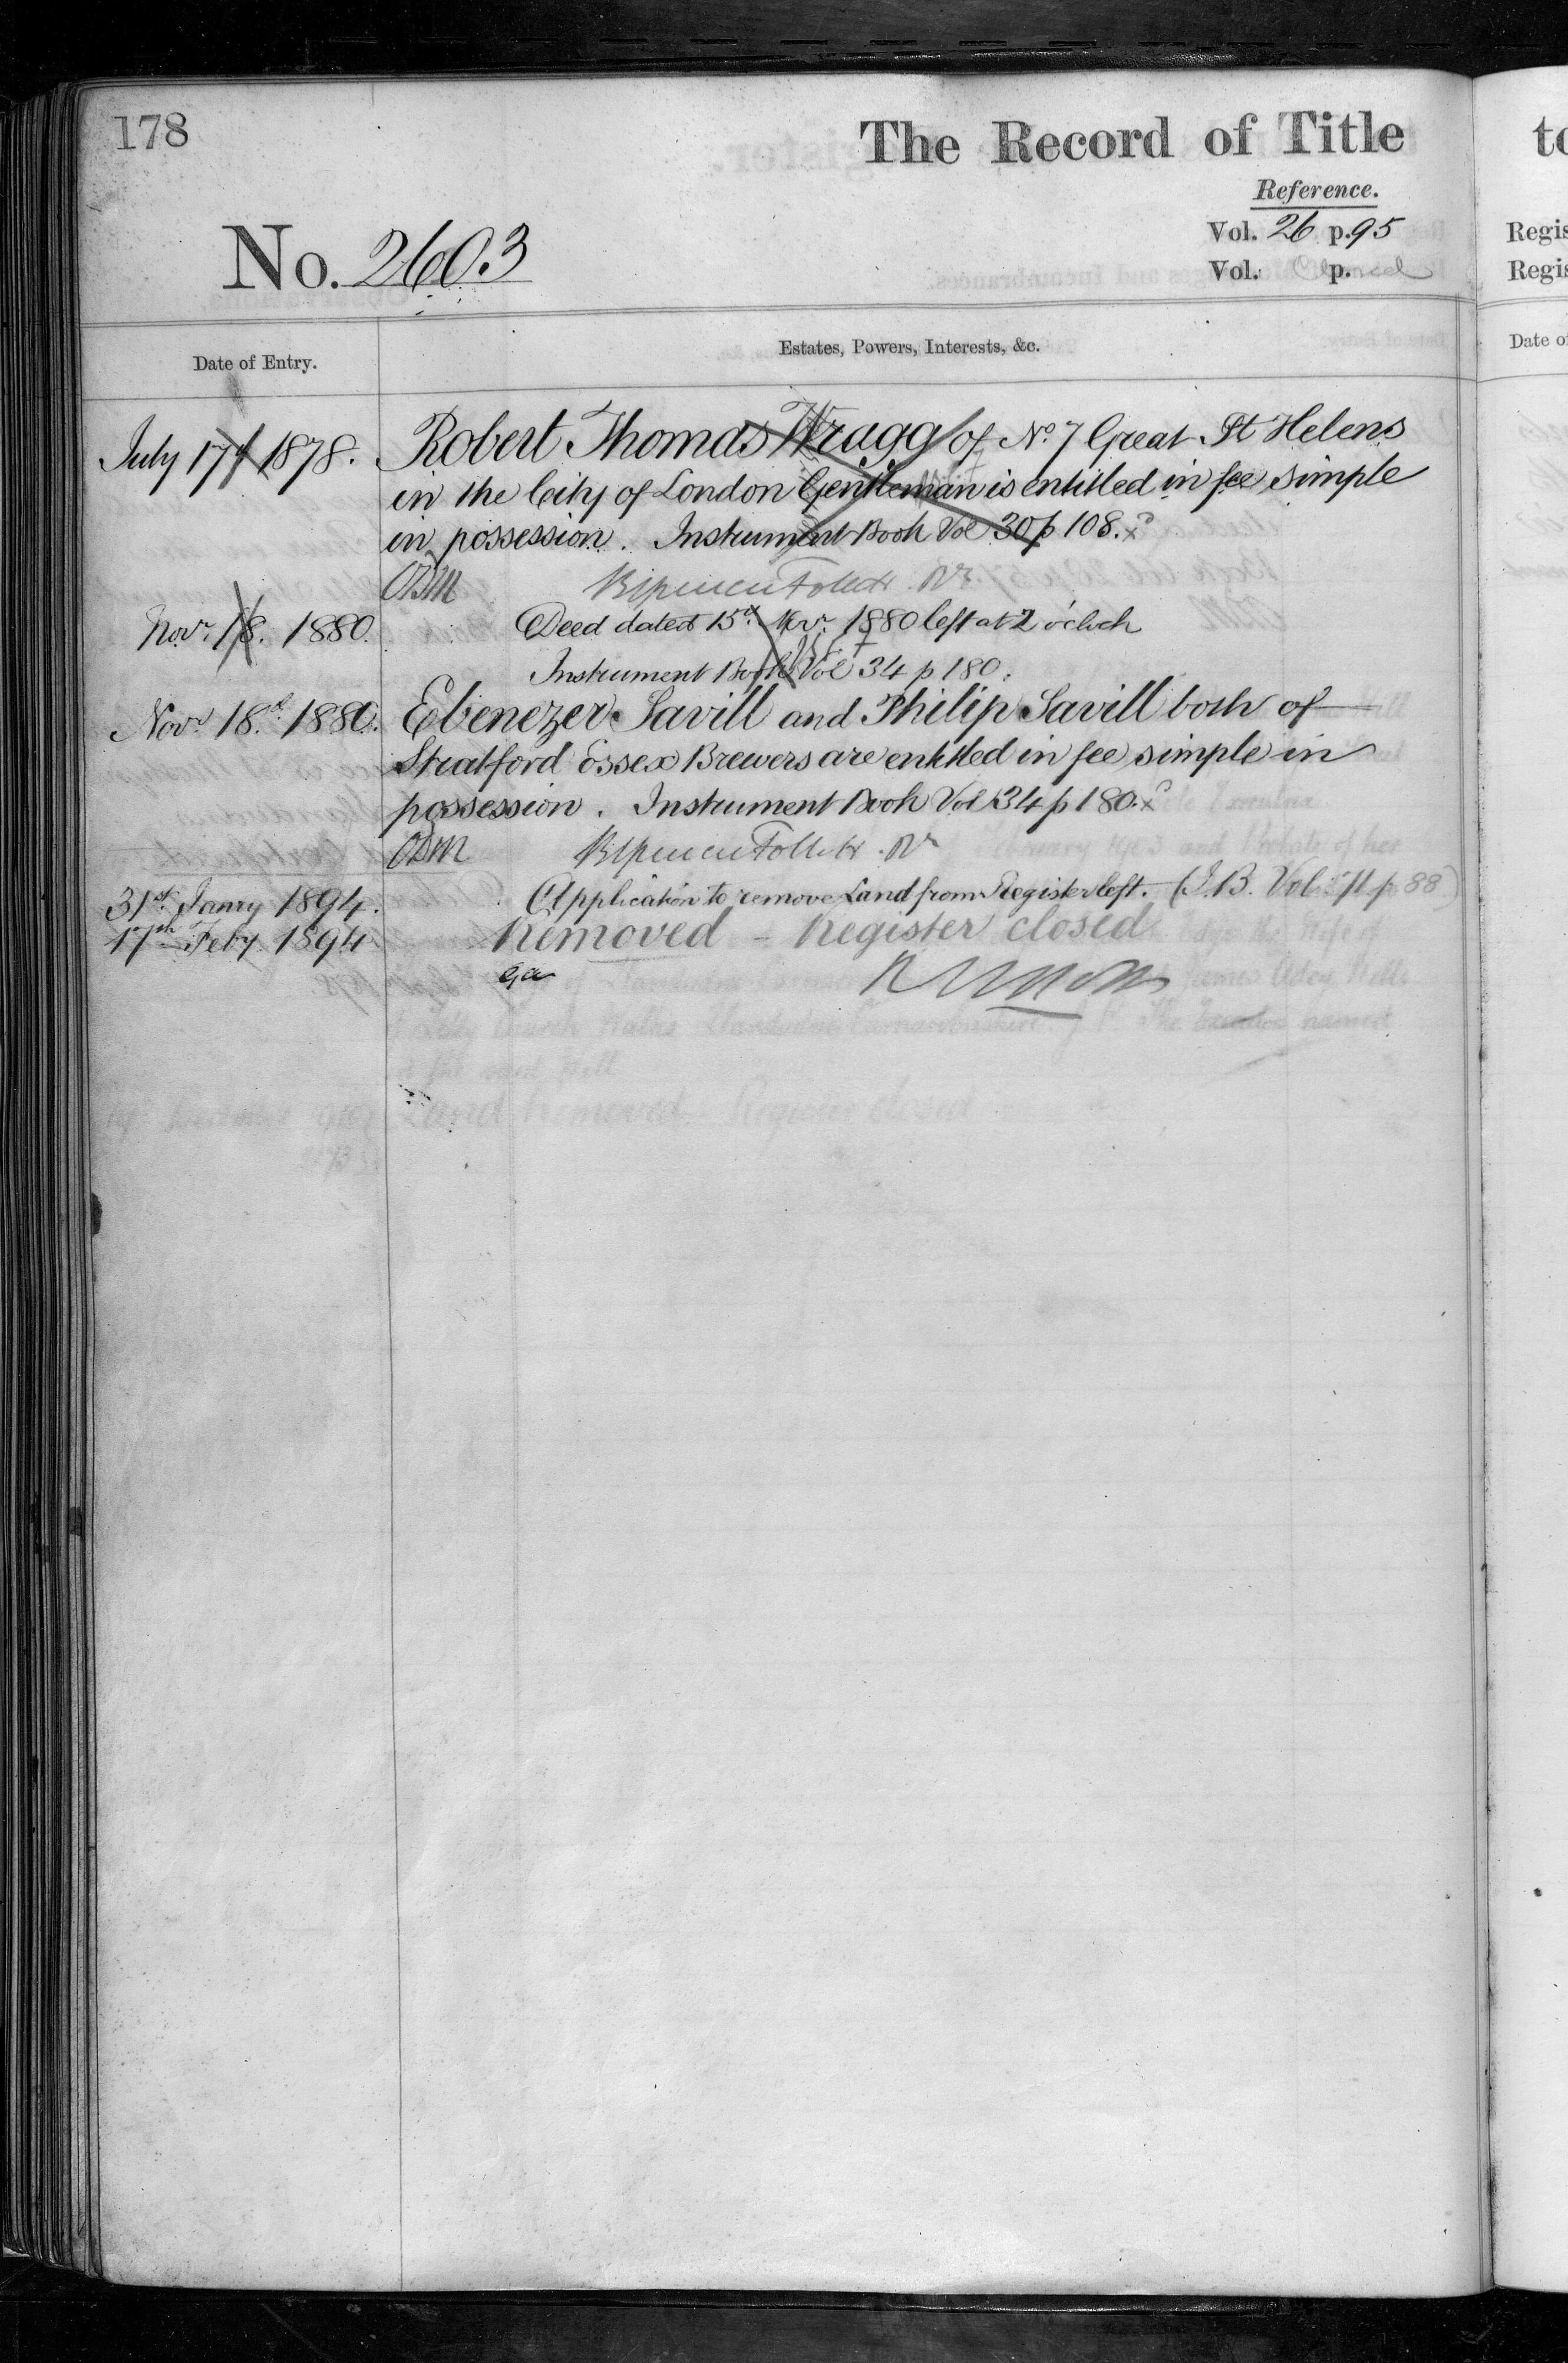 178
The Record of Title
Reference.
Vol. 26 p. 95
No. 2603
Vol. p. Closed
Date of Entry.
Estates, Powers, Interests, &c.
July 17th 1878. Robert Thomas Wragg of No. 7 Great St Helens
in the City of London Gentleman is entitled in fee simple
in possession. Instrument Book Vol 30 p 108.
Novr. 18. 1880. Deed dated 15th Novr. 1880 left at 2 o'clock
Instrument Book Vol 34 p 180.
Novr 18th 1880. Ebenezer Savill and Philip Savill both of
Stratford Essex Brewers are entitled in fee simple in
possession. Instrument Book Vol 34 p 180.
31st Janry 1894. Application to remove Land from Register left. (I.B. Vol 71 p 88)
17th Feby 1894 Removed - Register closed
to
Regis
Regis
Date o